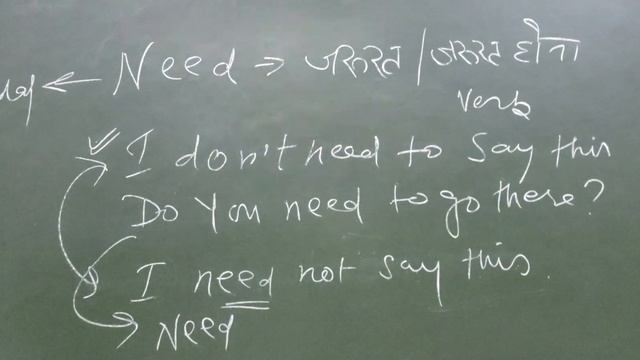 ← Need ⇒ जरूरत / जरूरत होना
Verb
✓ I don't need to say this
Do you need to go there?
I need not say this.
Need